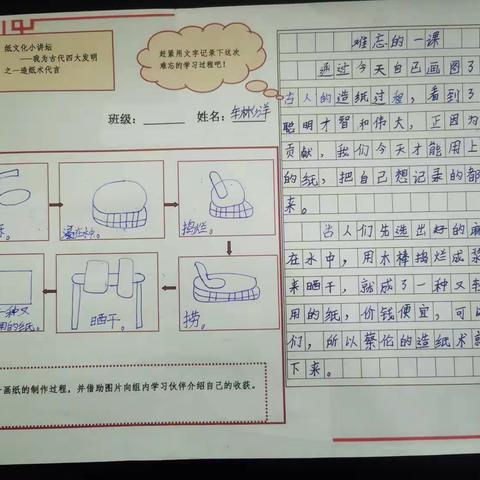 纸文化小讲坛
——我为古代四大发明
之一造纸术代言
赶紧用文字记录下这次
难忘的学习过程吧！
班级：
姓名：
浸在水中。
捣烂。
一种又
用的纸。
晒干。
捞。
画纸的制作过程，并借助图片向组内学习伙伴介绍自己的收获。
难忘的一课
通过今天自己画图了
古人的造纸过程，看到了
聪明才智和伟大，正因为
贡献，我们今天才能用上
的纸，把自己想记录的都
来。
古人们先选出好的麻
在水中，用木棒捣烂成浆
来晒干，就成了一种又轻
用的纸，价钱便宜，可
们，所以蔡伦的造纸术就
下来。